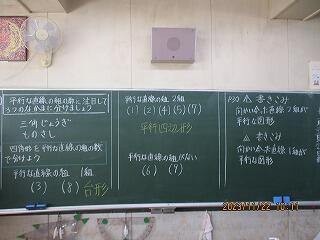 平行な直線の組の数に注目して
3つのなかまに分けましょう
三角じょうぎ
ものさし
四角形を平行な直線の組の数
で分けよう
平行な直線の組 1組
(3) (8) 台形
平行な直線の組 2組
(1)(2)(4)(5)(7)
平行四辺形
平行な直線の組がない
(6) (9)
P30 △ 書きこみ
向かい合った直線 2組が
平行な図形
△ 書きこみ
向かい合った直線 1組が
平行な図形
2023/11/22 10:11